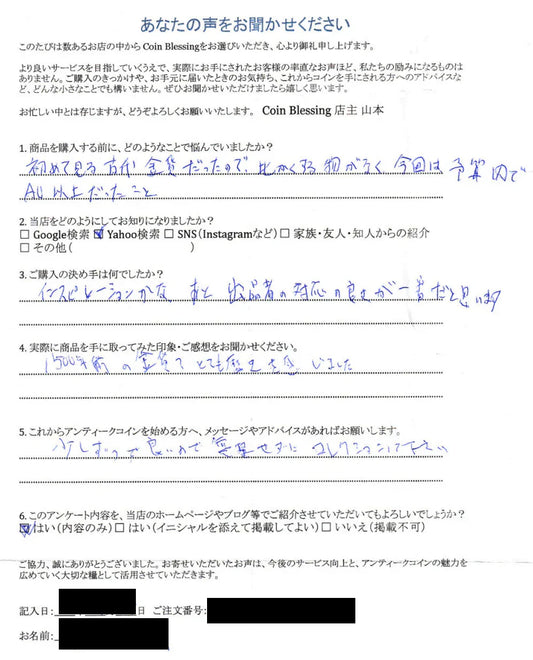 あなたの声をお聞かせください
このたびは数あるお店の中から Coin Blessingをお選びいただき、心より御礼申し上げます。
より良いサービスを目指していくうえで、実際にお手にされたお客様の率直なお声ほど、私たちの励みになるものは
ありません。ご購入のきっかけや、お手元に届いたときのお気持ち、これからコインを手にされる方へのアドバイスな
ど、どんな小さなことでも構いません。ぜひお聞かせいただけましたら嬉しく思います。
お忙しい中とは存じますが、どうぞよろしくお願いいたします。 Coin Blessing 店主 山本
1. 商品を購入する前に、どのようなことで悩んでいましたか？
初めて見る古代金貨だったので、比かくする物がなく 今回は予算内で
AU以上だったこと
2. 当店をどのようにしてお知りになりましたか？
□ Google検索 ☑ Yahoo検索 □ SNS（Instagramなど） □ 家族・友人・知人からの紹介
□ その他（ ）
3. ご購入の決め手は何でしたか？
インスピレーションかな あと 出品者の対応の良さが一番だと思います
4. 実際に商品を手に取ってみた印象・ご感想をお聞かせください。
1500年前の金貨で とても歴史を感じました
5. これからアンティークコインを始める方へ、メッセージやアドバイスがあればお願いします。
少しずつで良いので 無理せずに コレクションして下さい
6. このアンケート内容を、当店のホームページやブログ等でご紹介させていただいてもよろしいでしょうか？
☑ はい（内容のみ） □ はい（イニシャルを添えて掲載してよい） □ いいえ（掲載不可）
ご協力、誠にありがとうございました。お寄せいただいたお声は、今後のサービス向上と、アンティークコインの魅力を
広めていく大切な糧として活用させていただきます。
記入日： 日 ご注文番号：
お名前：